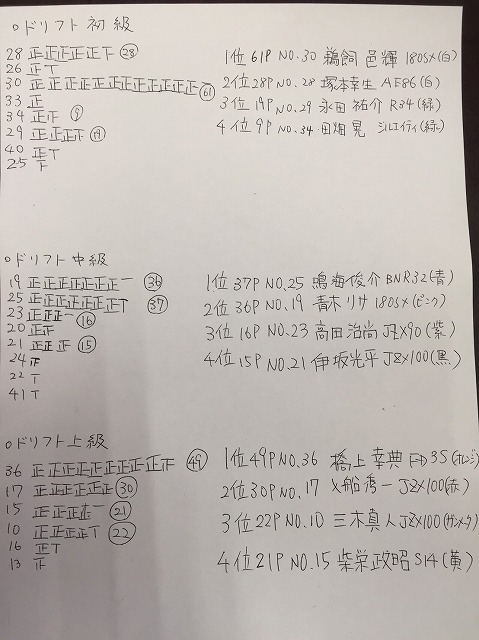 ○ドリフト初級
28 正正正正正下 28
26 正T
30 正正正正正正正正正正正正一 61
33 正
34 正正 9
29 正正正正 19
40 正T
25 下
1位 61P NO.30 鵜飼 邑輝 180SX(白)
2位 28P NO.28 塚本幸生 AE86(白)
3位 19P NO.29 永田 祐介 R34(緑)
4位 9P NO.34 田畑 晃 シルエイティ(緑)
○ドリフト中級
19 正正正正正正正一 36
25 正正正正正正正T 37
23 正正正一 16
20 正正
21 正正正 15
24 正
22 T
41 T
1位 37P NO.25 鳴海俊介 BNR32(青)
2位 36P NO.19 青木リサ 180SX(ピンク)
3位 16P NO.23 高田治尚 JZX90(紫)
4位 15P NO.21 伊坂光平 JZX100(黒)
○ドリフト上級
36 正正正正正正正正正正 49
17 正正正正正正 30
15 正正正正一 21
10 正正正正T 22
16 正T
13 正
1位 49P NO.36 橋上幸典 FD3S(オレンジ)
2位 30P NO.17 船秀一 JZX100(赤)
3位 22P NO.10 三木真人 JZX100(ガンメタ)
4位 21P NO.15 柴栄政昭 S14(黄)